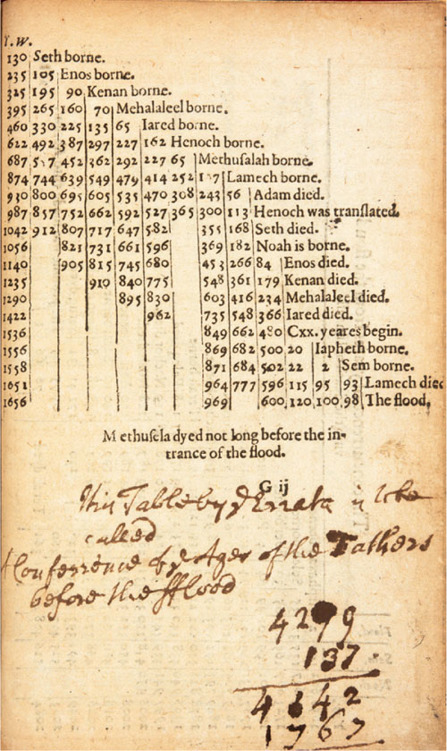 Y.W.
130 Seth borne.
235 105 Enos borne.
325 195 90 Kenan borne.
395 265 160 70 Mehalaleel borne.
460 330 225 135 65 Iared borne.
622 492 387 297 227 162 Henoch borne.
687 5 7 452 362 292 227 65 Methusalah borne.
874 744 639 549 479 414 252 1 7 Lamech borne.
930 800 695 605 535 470 308 243 56 Adam died.
987 857 752 662 592 527 365 300 113 Henoch was translated.
1042 912 807 717 647 582 355 168 Seth died.
1056 821 731 661 596 369 182 Noah is borne.
1140 905 815 745 680 453 266 84 Enos died.
1235 910 840 775 548 361 179 Kenan died.
1290 895 830 603 416 234 Mehalaleel died.
1422 962 735 548 366 Iared died.
1536 849 662 480 Cxx. yeares begin.
1556 869 682 500 20 Iapheth borne.
1558 871 684 502 22 2 Sem borne.
1651 964 777 596 115 95 93 Lamech died
1656 969 600 120 100 98 The flood.
Methusela dyed not long before the in-
trance of the flood.
G ij
this Table by ye Errata is to be
called
Conference of ye Ages of the Fathers
before the fflood
4299
137
4142
1767